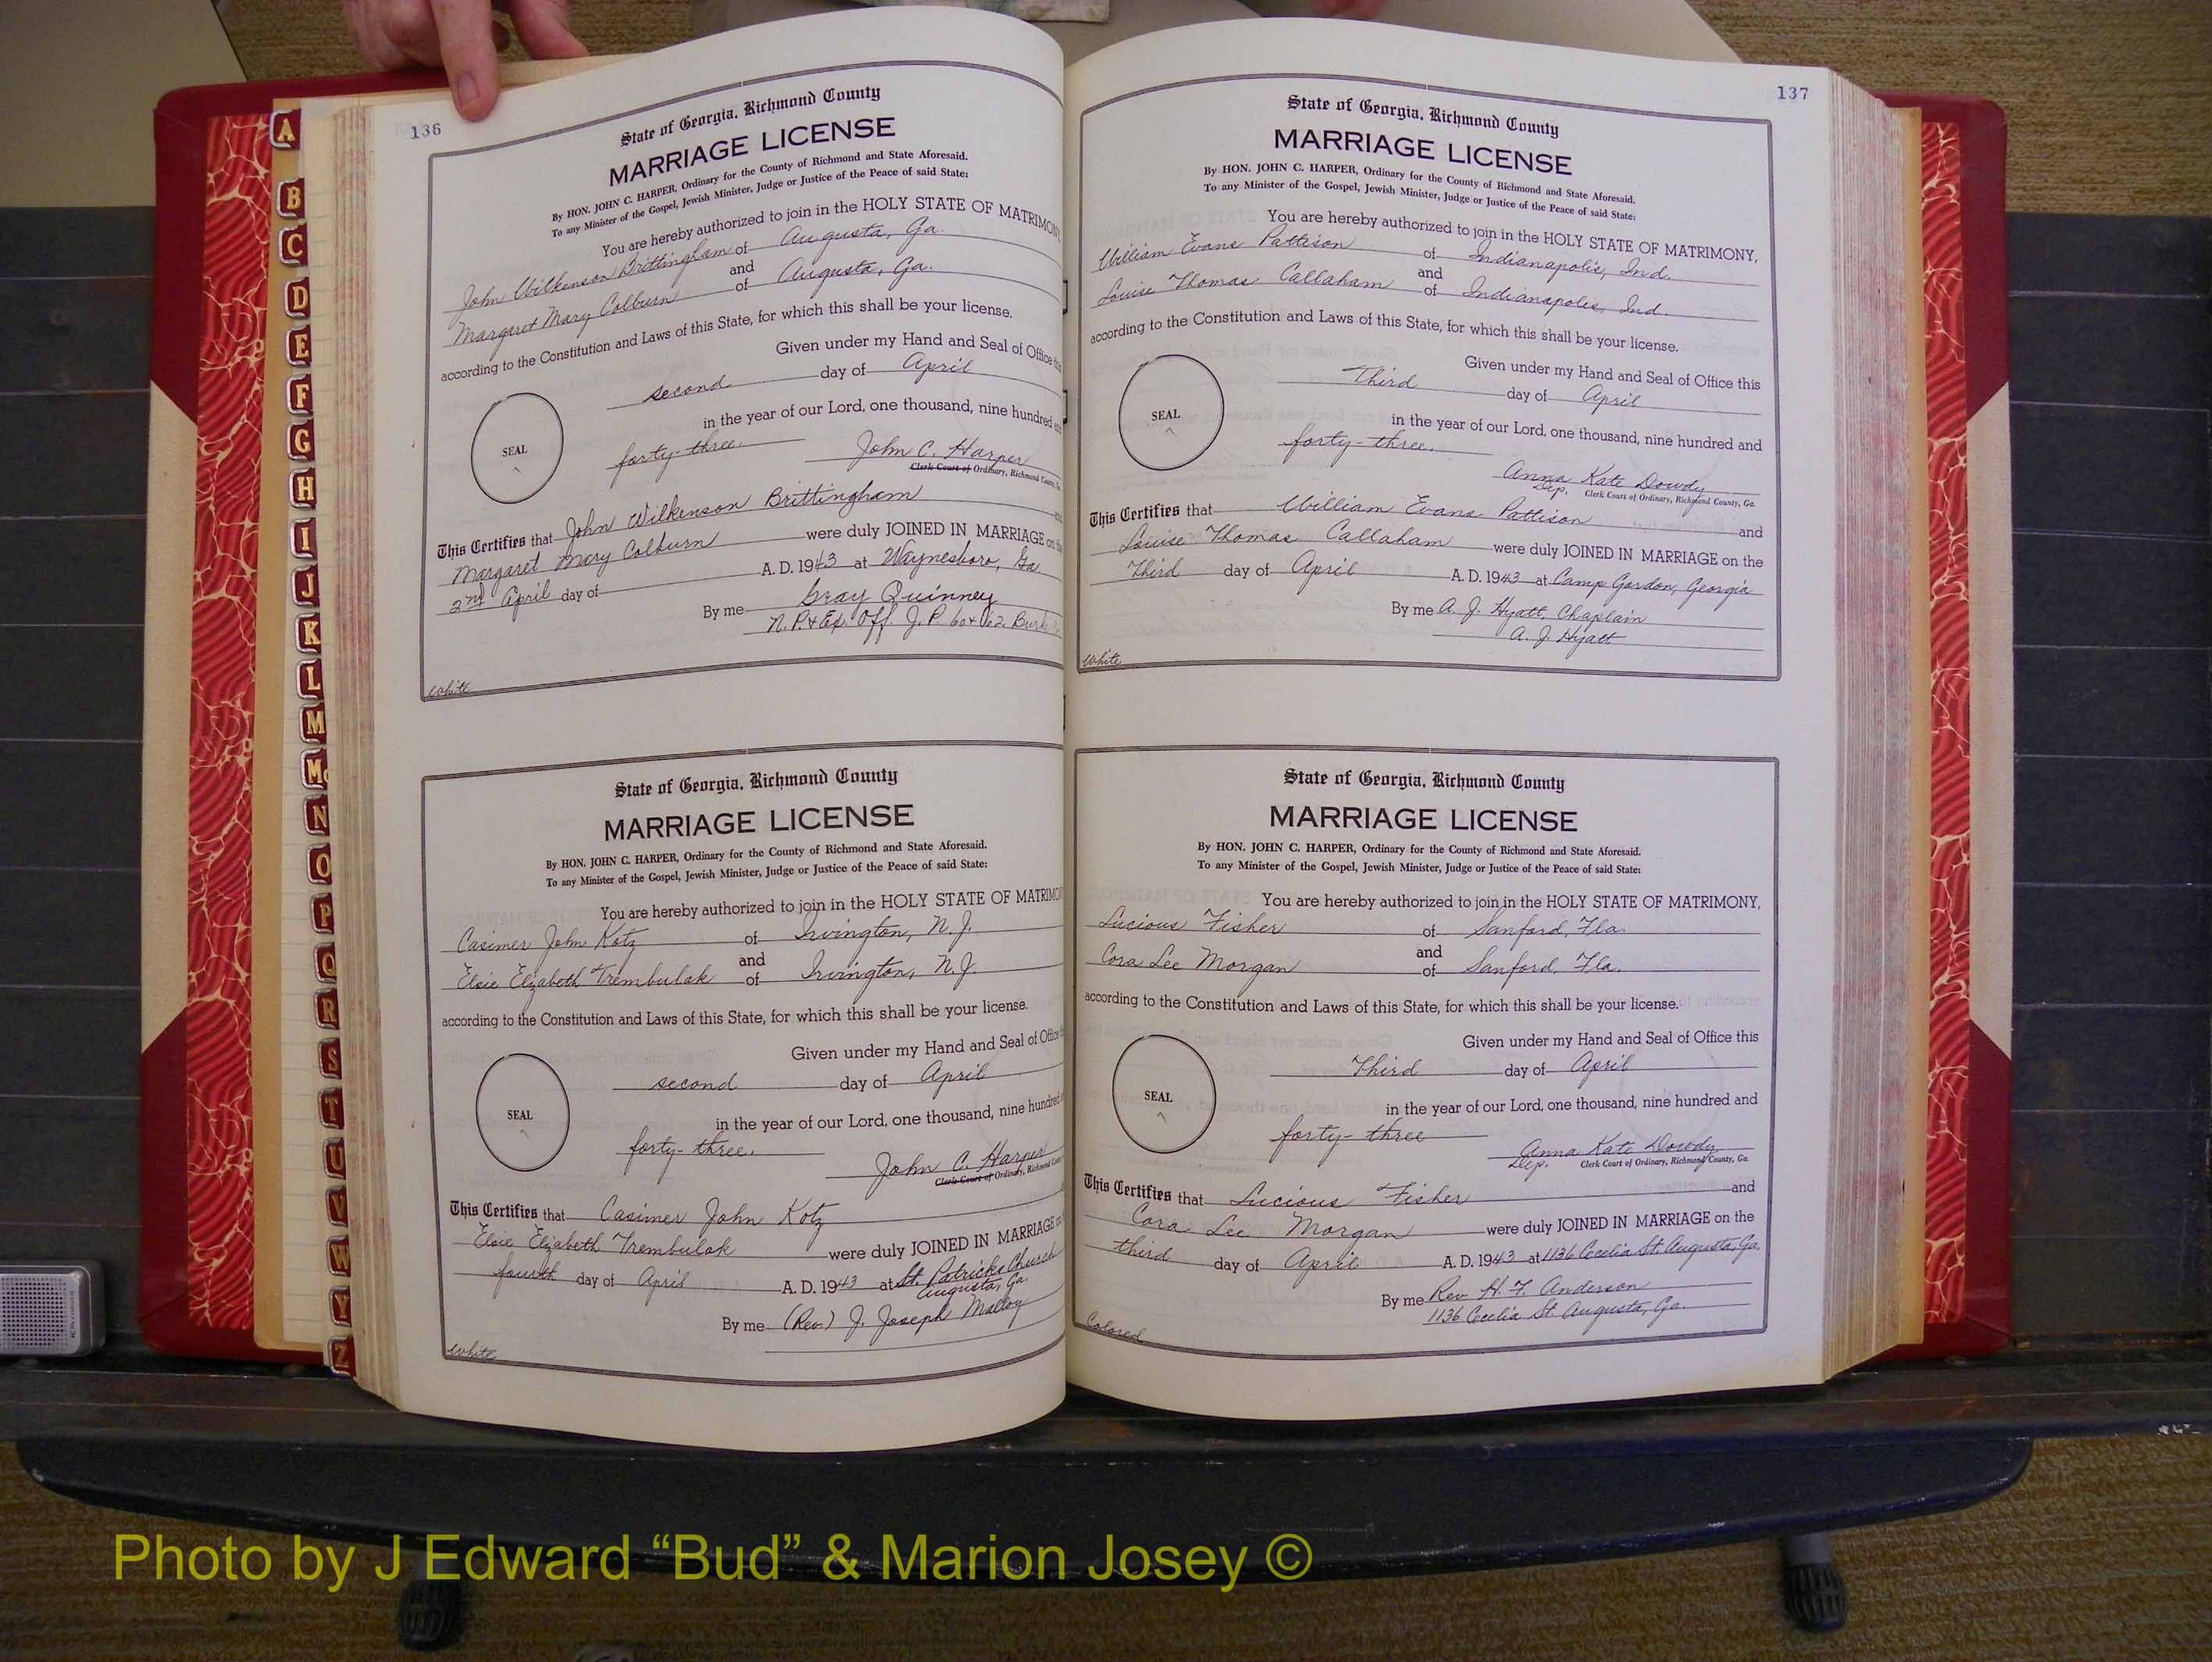 136
State of Georgia, Richmond County
MARRIAGE LICENSE
By HON. JOHN C. HARPER, Ordinary for the County of Richmond and State Aforesaid.
To any Minister of the Gospel, Jewish Minister, Judge or Justice of the Peace of said State:
You are hereby authorized to join in the HOLY STATE OF MATRIMONY
John Wilkenson Brittingham of Augusta, Ga.
and
Margaret Mary Colburn of Augusta, Ga.
according to the Constitution and Laws of this State, for which this shall be your license.
Given under my Hand and Seal of Office
second day of April
in the year of our Lord, one thousand, nine hundred
SEAL
forty-three.
John C. Harper
Clerk Court of Ordinary, Richmond County
This Certifies that John Wilkenson Brittingham
Margaret Mary Colburn were duly JOINED IN MARRIAGE on
2nd April day of A. D. 1943 at Waynesboro, Ga.
By me Gray Quinney
N. P. & Ex. Off. J. P. 60 & 62 Burke
White
State of Georgia, Richmond County
MARRIAGE LICENSE
By HON. JOHN C. HARPER, Ordinary for the County of Richmond and State Aforesaid.
To any Minister of the Gospel, Jewish Minister, Judge or Justice of the Peace of said State:
You are hereby authorized to join in the HOLY STATE OF MATRIMO
Casimer John Kotz of Irvington, N.J.
and
Elsie Elizabeth Trembulak of Irvington, N.J.
according to the Constitution and Laws of this State, for which this shall be your license.
Given under my Hand and Seal of Office
second day of April
in the year of our Lord, one thousand, nine hundred
SEAL
forty-three.
John C. Harper
Clerk Court of Ordinary, Richmond County
This Certifies that Casimer John Kotz
Elsie Elizabeth Trembulak were duly JOINED IN MARRIAGE
fourth day of April A. D. 1943 at St. Patricks Church
Augusta, Ga.
By me (Rev.) J. Joseph Malloy
White
137
State of Georgia, Richmond County
MARRIAGE LICENSE
By HON. JOHN C. HARPER, Ordinary for the County of Richmond and State Aforesaid.
To any Minister of the Gospel, Jewish Minister, Judge or Justice of the Peace of said State:
You are hereby authorized to join in the HOLY STATE OF MATRIMONY,
William Evans Pattison of Indianapolis, Ind.
and
Louise Thomas Callaham of Indianapolis, Ind.
according to the Constitution and Laws of this State, for which this shall be your license.
Given under my Hand and Seal of Office this
Third day of April
in the year of our Lord, one thousand, nine hundred and
SEAL
forty-three.
Anna Kate Dowdy
Dep. Clerk Court of Ordinary, Richmond County, Ga.
This Certifies that William Evans Pattison and
Louise Thomas Callaham were duly JOINED IN MARRIAGE on the
Third day of April A. D. 1943 at Camp Gordon, Georgia
By me A. J. Hyatt, Chaplain
A. J. Hyatt
White
State of Georgia, Richmond County
MARRIAGE LICENSE
By HON. JOHN C. HARPER, Ordinary for the County of Richmond and State Aforesaid.
To any Minister of the Gospel, Jewish Minister, Judge or Justice of the Peace of said State:
You are hereby authorized to join in the HOLY STATE OF MATRIMONY,
Lucious Fisher of Sanford, Fla.
and
Cora Lee Morgan of Sanford, Fla.
according to the Constitution and Laws of this State, for which this shall be your license.
Given under my Hand and Seal of Office this
Third day of April
in the year of our Lord, one thousand, nine hundred and
SEAL
forty-three
Anna Kate Dowdy
Dep. Clerk Court of Ordinary, Richmond County, Ga.
This Certifies that Lucious Fisher and
Cora Lee Morgan were duly JOINED IN MARRIAGE on the
third day of April A. D. 1943 at 1136 Cecelia St. Augusta, Ga.
By me Rev. H. F. Anderson
1136 Cecelia St Augusta, Ga.
Colored
A
B
C
D
E
F
G
H
I
J
K
L
M
Mc
N
O
P
Q
R
S
T
U
V
W
Y
Z
Photo by J Edward “Bud” & Marion Josey ©